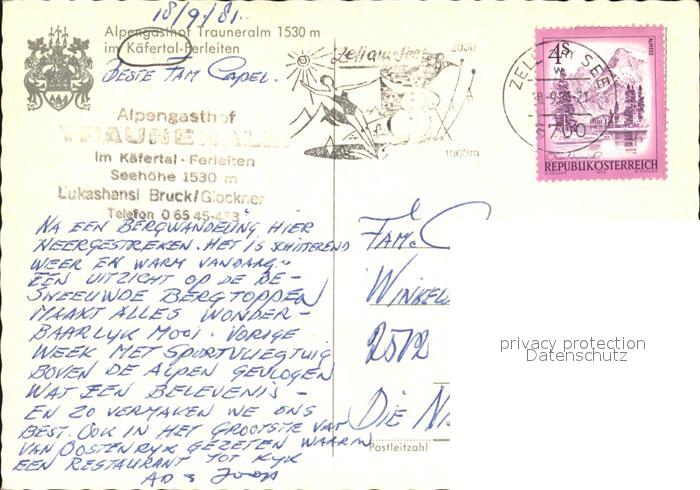 18/9/81.
Alpengasthof Trauneralm 1530 m
im Käfertal-Ferleiten
BESTE FAM CAPEL.
Zell am See
2000
1000m
ZELL AM SEE
5700
4S
ALMSEE
REPUBLIK ÖSTERREICH
Alpengasthof
TRAUNERALM
im Käfertal - Ferleiten
Seehöhe 1530 m
Lukashansl Bruck/Glockner
Telefon 0 65 45-
NA EEN BERGWANDELING HIER
NEERGESTREKEN. HET IS SCHITTEREND
WEER EN WARM VANDAAG.
EEN UITZICHT OP DE BE-
SNEEUWDE BERGTOPPEN
MAAKT ALLES WONDER-
BAARLIJK MOOI. VORIGE
WEEK MET SPORTVLIEGTUIG
BOVEN DE ALPEN GEVLOGEN
WAT EEN BELEVENIS -
EN ZO VERMAKEN WE ONS
BEST. OOK IN HET GROOTSTE VAT
VAN OOSTENRIJK GEZETEN WAARIN
EEN RESTAURANT TOT KIJK
AD &
FAM. C
WINKEL
2512
DIE N
Postleitzahl
privacy protection
Datenschutz